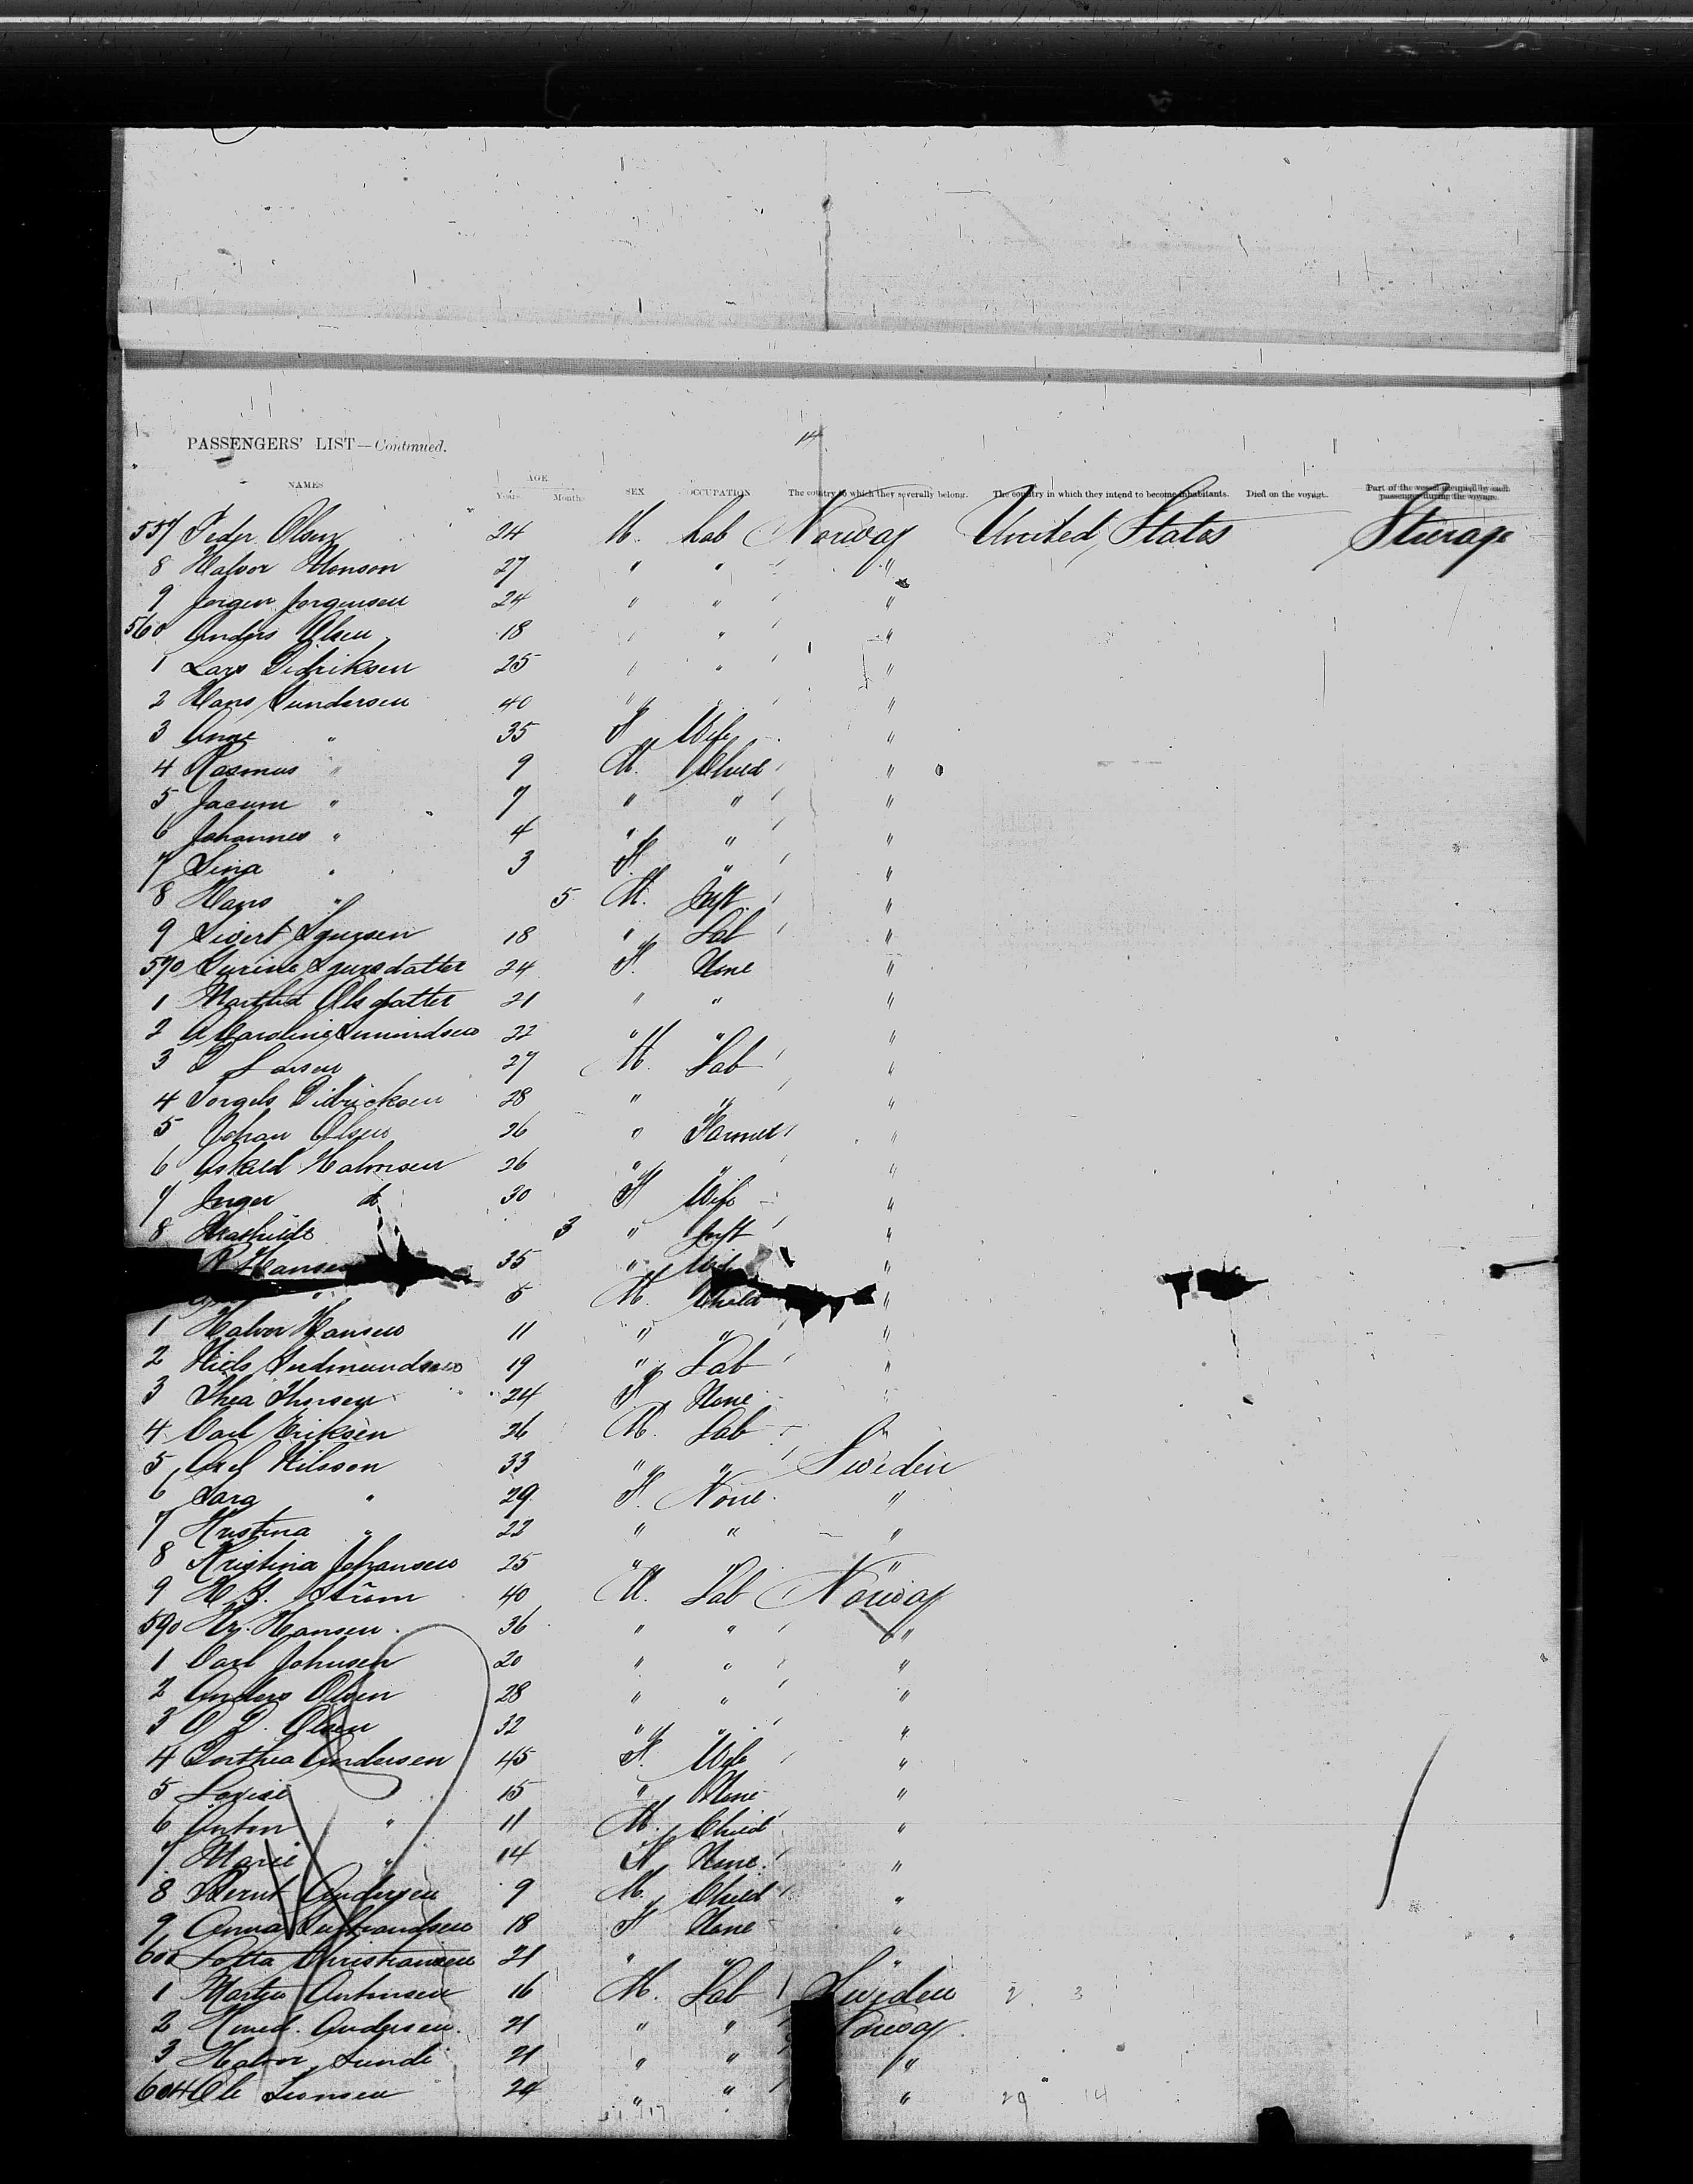 14
PASSENGERS' LIST—Continued.
NAMES AGE. Years. Months. SEX OCCUPATION The country to which they severally belong. The country in which they intend to become inhabitants. Died on the voyage. Part of the vessel occupied by each passenger during the voyage.
557 Peder Olsen 24 M. Lab Norway United States Steerage
8 Halvor Monson 27 " " "
9 Jorgen Jorgensen 24 " " "
560 Anders Olsen 18 " " "
1 Lars Didriksen 25 " " "
2 Hans Gundersen 40 " " "
3 Anne " 35 F Wife "
4 Rasmus " 9 M. Child "
5 Jacum " 7 " " "
6 Johannes " 4 " " "
7 Sina " 3 F. " "
8 Hans " 5 M. Inft. "
9 Sivert 18 " Lab "
570 24 F. None "
1 Martha Olsdatter 21 " " "
2 A Caroline 22 " " "
3 Larsen 27 M. Lab "
4 28 " " "
5 Johan Olsen 26 " Farmer "
6 Askild Halvorsen 26 " " "
7 Inger do 30 F Wife "
8 Mathilde 3 " Inft "
R Hansen 35 " Wife "
" 5 M. Child "
1 Halvor Hansen 11 " " "
2 Niels Gudmundsen 19 " Lab "
3 Thea Thorsen 24 F None "
4 Carl Eriksen 26 M. Lab "
5 Axel Nilsson 33 " " Sweden
6 Sara " 29 F. None "
7 Kristina " 22 " " "
8 Kristina Johansen 25 " " "
9 H. Strom 40 M. Lab Norway
590 Hansen 36 " " "
1 Carl Johnsen 20 " " "
2 Anders Olsen 28 " " "
3 O Olsen 32 " " "
4 Dorthea Andersen 45 F. Wife "
5 Lovise 15 " None "
6 Anton " 11 M. Child "
7 Marie " 14 F None "
8 Bernt Andersen 9 M. Child "
9 Anna 18 F None "
600 Lotta Christiansen 21 " " "
1 Martin Antonsen 16 M. Lab Sweden 2 3
2 Andersen 21 " " Norway
3 Halvor Lunde 21 " " "
604 Ole 24 " " " 29 14